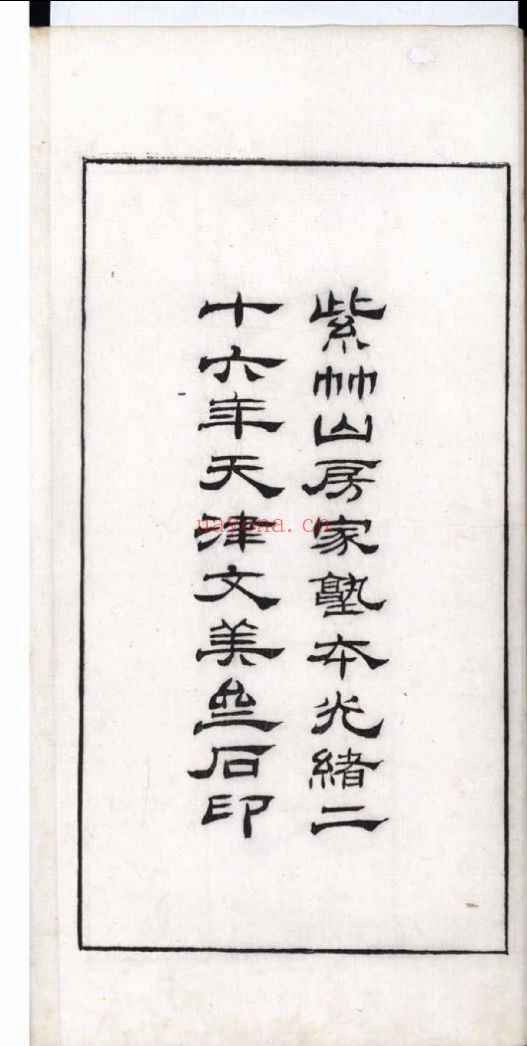 紫竹山房家塾本光緒二
十六年天津文美亝石印
nayona.cn